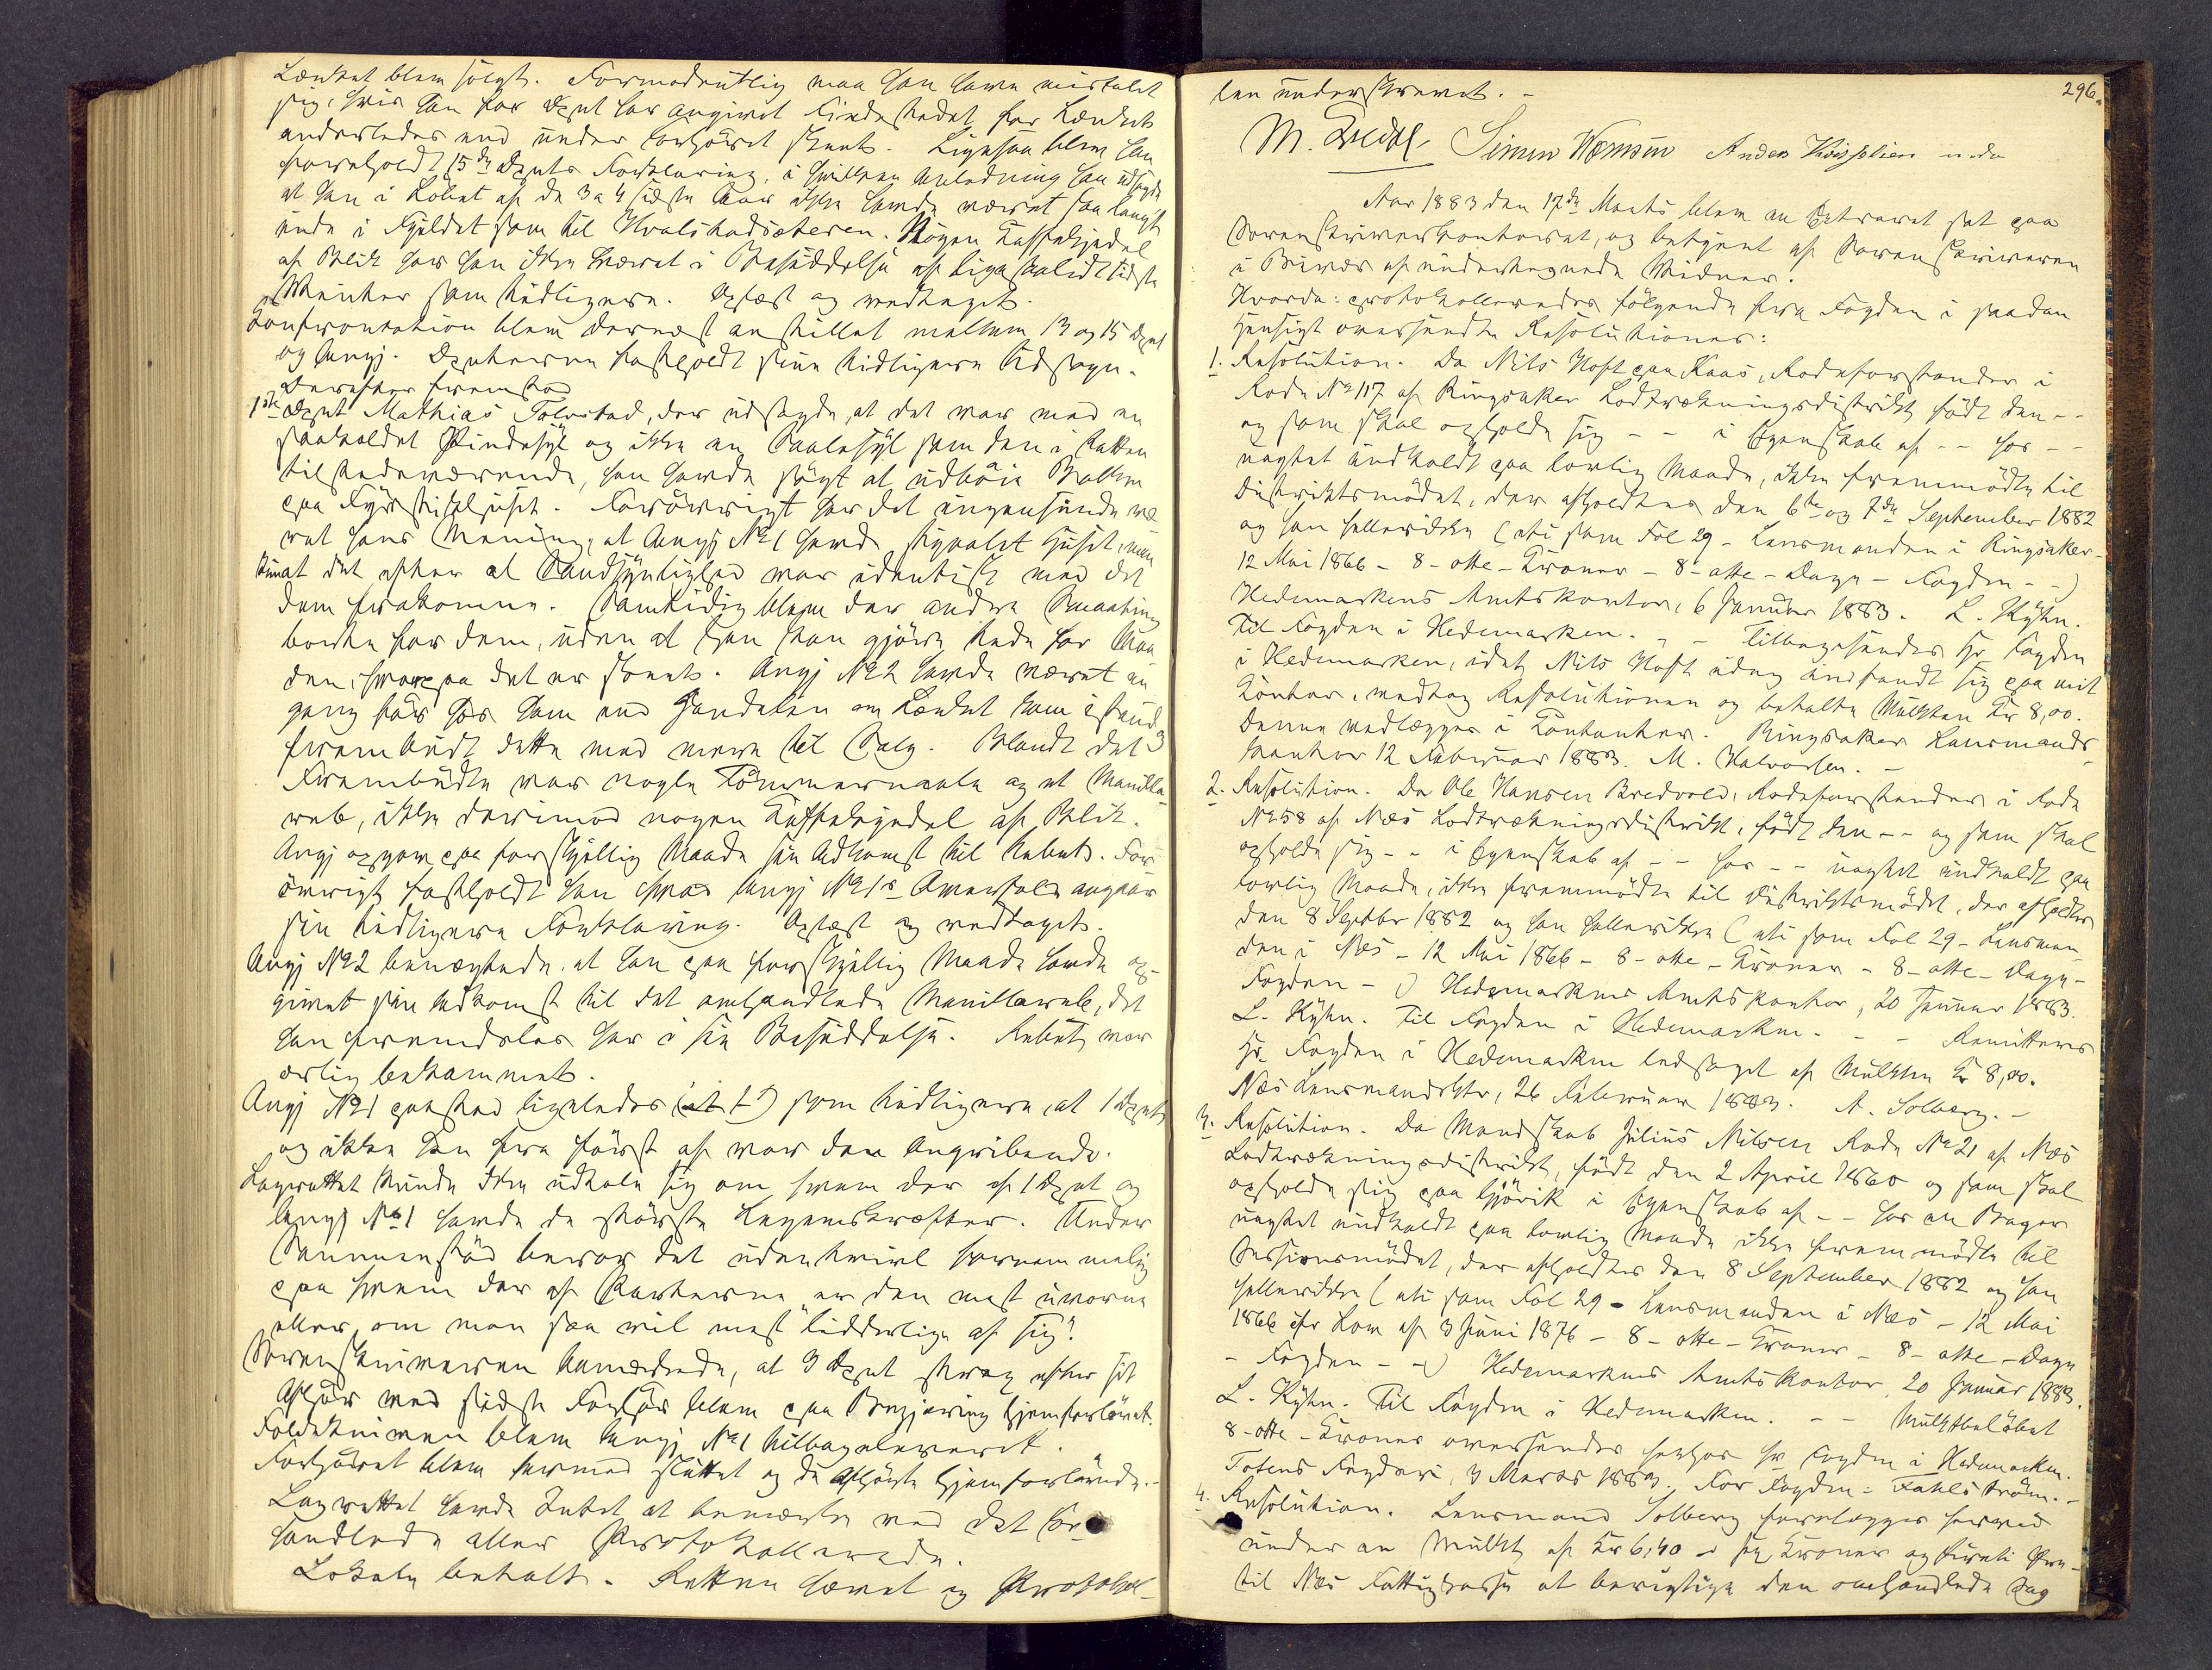 Lændset blev solgt. Formodentlig maa han have mistalt
sig, hvis han for Dpnt har angivet Findestedet for Lændset
anderledes end under Forhøret skeet. Ligesaa blev han
foreholdt 15de Dpnts Forklaring, i hvilken Anledning han udsagde
at han i Løbet af de 3 a 4 sidste Aar ikke havde været saa langt
inde i Fjeldet som til Hvalstadsæteren. Nogen Kaffekjedel
af Blik har han ikke været i Besiddelse af ligesaalidt sidste
Vinter som tidligere. Oplæst og vedtaget.
Konfrontation blev dernæst anstillet mellem 13 og 15 Dpnt
og Angj. Dpnterne fastholdt sine tidligere Udsagn.
Derefter fremstod
1ste Dpnt Mathias Tolvstad, der udsagde, at det var med en
saakaldet Pindesyl og ikke en Saalesyl som den i Retten
tilstedeværende, han havde søgt at udbøie
paa Fyrstikhuset. Forøvrigt har det ingensinde væ
ret hans Mening, at Angj No 1 havde stjaalet Huset, men
kun at det efter al Sandsynlighed var identisk med det
dem frakomne. Samtidig blev der andre Smaating
borte for dem, uden at han kan gjøre Rede for Maa
den, hvorpaa det er skeet. Angj No 2 havde været en
gang før hos ham end Handelen om Lændset kom istand
frembudt dette med mere til Salg. Blandt det
Frembudte var nogle Tømmernaale og et Manilla
reb, ikke derimod nogen Kaffekjedel af Blik.
Angj opgav paa forskjellig Maade sin Adkomst til Rebet. For
øvrigt fastholdt han hvad Angj No 1s Overfald angaar
sin tidligere Forklaring. Oplæst og vedtaget.
Angj No 2 benægtede, at han paa forskjellig Maade havde op-
givet sin Adkomst til det omhandlede Manillareb, det
han fremdeles har i sin Besiddelse. Rebet var
ærlig bekommet.
Angj No 1 paastod ligeledes som tidligere, at 1 Dpnt
og ikke han fra først af var den Angribende.
Lagrettet kunde ikke udtale sig om, hvem der af 1 Dpnt og
Angj No 1 havde de største Legemskræfter. Under
Sammenstød beror det uden Tvivl fornemmelig
paa hvem der af Parterne er den mest uvorne
eller, om man saa vil mest "lidderlige af sig".
Sorenskriveren bemærkede, at 9 Dpnt strax efter sit
Afhør ved sidste Forhør blev paa Begjæring hjemforlovet.
Foldekniven blev Angj No 1 tilbageleveret.
Forhøret blev hermed sluttet og de Afhørte hjemforlovede.-
Lagrettet havde Intet at bemærke ved det For
handlede eller Protokollerede.
Lokale betalt. Retten hævet og Protokol-
296.
len underskrevet. -
M. Simen Wernsen Anders Kvisslien
Aar 1883 den 17de Marts blev en Extraret sat paa
Sorenskriverkontoret, og betjent af Sorenskriveren
i Overvær af undertegnede Vidner.
Hvorda: protokolleredes følgende fra Fogden i saadan
Hensigt oversendte Resolutioner:
1. Resolution. Da Nils Hoft paa Kaas, Rodeforstander i
Rode No 117 af Ringsaker Lodtrækningsdistrikt født den --
og som skal opholde sig - - i Egenskab af - - hos - -
uagtet indkaldt paa lovlig Maade, ikke fremmødte til
Distriktsmødet, der afholdtes den 6te og 7de September 1882
og han hellerikke (ati som Fol 29 - Lensmanden i Ringsaker -
12 Mai 1866 - 8 - otte - Kroner - 8 - otte - Dage - Fogden - -)
Hedemarkens Amtskontor, 6 Januar 1883. L. Kyhn.
Til Fogden i Hedemarken. - - Tilbagesendes Hr Fogden
i Hedemarken, idet Nils Hoft idag indfandt sig paa mit
Kontor, vedtog Resolutionen og betalte Mulkten Kr 8,00.
Denne vedlægges i Kontanter. Ringsaker Lensmands-
kontor 12 Februar 1883. M. Halvorsen. -
2. Resolution. Da Ole Hansen Bredvold, Rodeforstander i Rode
No 58 af Næs Lodtrækningsdistrikt, født den - - og som skal
opholde sig - - i Egenskab af - - hos - - uagtet indkaldt paa
lovlig Maade, ikke fremmødte til Distriktsmødet, der afholdtes
den 8 Septbr 1882 og han hellerikke (ati som Fol 29 - Lensman
den i Næs - 12 Mai 1866 - 8 - otte - Kroner - 8 - otte - Dage -
Fogden - -) Hedemarkens Amtskontor, 20 Januar 1883.
L. Kyhn. Til Fogden i Hedemarken. - - Remitteres
Hr. Fogden i Hedemarken ledsaget af Mulkten Kr 8,00.
Næs Lensmandsktr, 26 Februar 1883. A. Solberg. -
3. Resolution. Da Mandskab Julius Nilsen Rode No 21 af Næs
Lodtrækningsdistrikt, født den 2 April 1860 og som skal
opholde sig paa Gjøvik i Egenskab af - - hos en Bager
uagtet indkaldt paa lovlig Maade ikke fremmødte til
Sessionsmødet, der afholdtes den 8 September 1882 og han
hellerikke (ati som Fol 29 - Lensmanden i Næs - 12 Mai
1866 cfr Lov af 3 Juni 1876 - 8 - otte - Kroner - 8 - otte - Dage
- Fogden - -) Hedemarkens Amtskontor, 20 Januar 1883.
L. Kyhn. Til Fogden i Hedemarken. - - Mulktbeløbet
8 - otte - Kroner oversendes herhos Hr Fogden i Hedemarken.
Totens Fogderi, 3 Marts 1883. For Fogden: Fahlstrøm. -
4. Resolution. Lensmand Solberg forelægges herved
under en Mulkt af Kr 6,40 - sex Kroner og firti Øre -
til Næs Fattigkasse at berigtige den omhandlede Sag